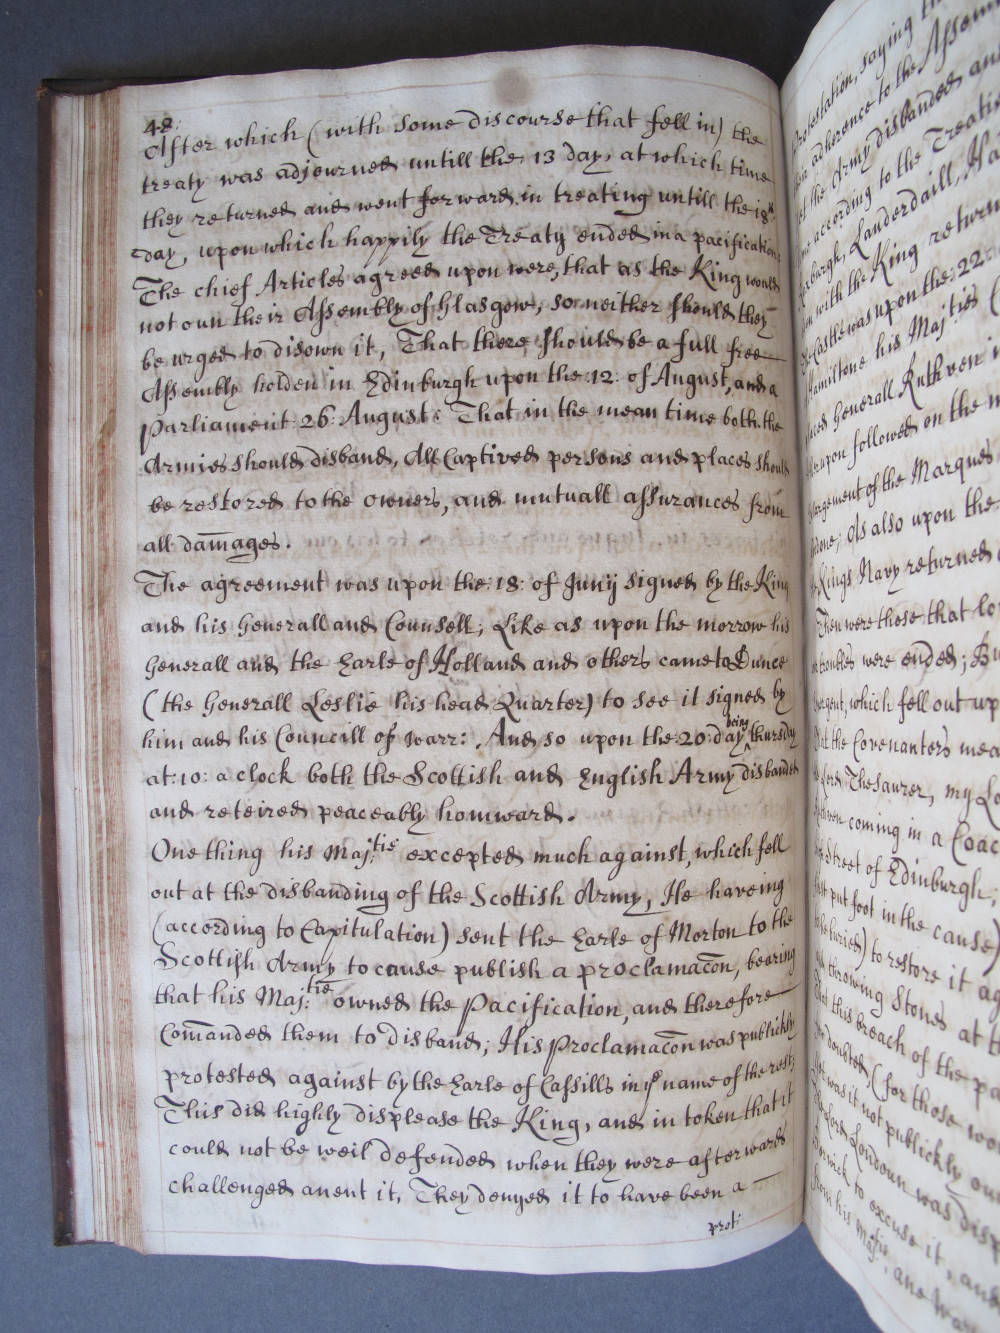 48:
After which (with some discourse that fell in) the
treaty was adjourned untill the 13 day, at which time
they returned and went forward in treating untill the 18th
day, upon which happily the Treaty ended in a pacification:
The chief Articles agreed upon were, that as the King would
not oun their Assembly of Glasgow, so neither should they
be urged to disown it, That there should be a full free
Assembly holden in Edinburgh upon the :12: of August, and a
Parliament :26: August: That in the mean time both the
Armies should disband, All Captived persons and places should
be restored to the owners, and mutuall assurances from
all dam̄ages.
The agreement was upon the :18: of Junij signed by the King
and his Generall and Counsell; Like as upon the morrow his
Generall and the Earle of Holland and others came to Dunce
(the Generall Leslie his head Quarter) to see it signed by
him and his Councill of warr: And so upon the :20: day being thursday
at :10: a clock both the Scottish and English Army disbanded
and reteired peaceably homward.
One thing his Maj:tie excepted much against, which fell
out at the disbanding of the Scottish Army, He haveing
(according to Capitulation) sent the Earle of Morton to the
Scottish Army to cause publish a proclamac̄on, bearing
that his Maj:tie owned the Pacification, and therefore
Com̄anded them to disband; His Proclamac̄on was publickly
protested against by the Earle of Cassills in ye name of the rest;
This did highly displease the King, and in token that it
could not be weil defended when they were afterwards
challenged anent it, They denyed it to have been a
prot:
Protestation, saying
adherence to the Assem
the Army disbanded and
according to the Treati
Lauderdaill, Ha
with the King return
Castle was upon the :22:
Hamiltone his Maj:ties
Generall Ruthven
upon followed on the
of the Marques
As also upon the
Kings Navy returned
Then were these that lo
troubles were ended; Bu
which fell out up
the Covenanters mea
Lord Thesaurer, my Lo
coming in a Coac
Street of Edinburgh;
put foot in the cause)
to restore it ag
throwing Stones at th
this breach of the pa
doubted, (for those wo
was it not publickly oun
Lord Loudoun was disp
to excuse it, and
his Maj:tie, and war